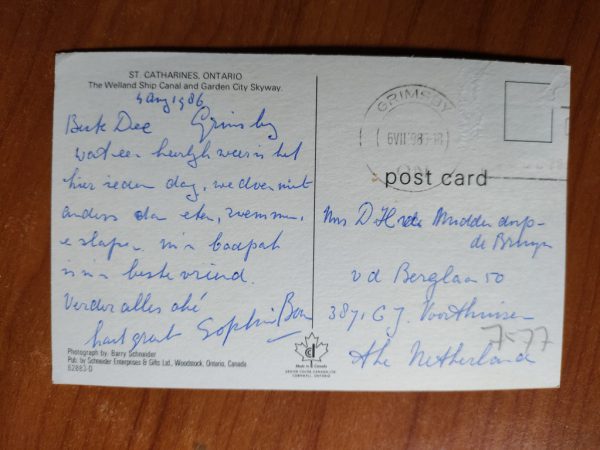 ST. CATHARINES, ONTARIO
The Welland Ship Canal and Garden City Skyway.
4 aug 1986
Beste Dee Grimsby
wat een heerlijk weer is het
hier ieder dag, we doen niet
anders dan eten, zwemmen,
e slapen. m'n badpak
is m'n beste vriend.
Verder alles oké
hart. groet Sophie Ben
GRIMSBY
6 VII
ON
post card
Mrs D H
de Bruyn
v d Berglaan 50
3871 CJ Voorthuizen
the Netherlands
7-77
Photograph by: Barry Schneider
Pub. by Schneider Enterprises & Gifts Ltd., Woodstock, Ontario, Canada
62883-D
Made in Canada
CORNWALL, ONTARIO